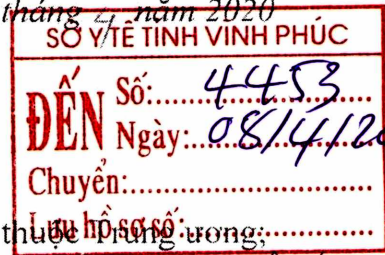 tháng 4 năm 2020
SỞ Y TẾ TỈNH VĨNH PHÚC
ĐẾN
Số: 4453
Ngày: 08/4/20
Chuyển:
Lưu hồ sơ số:
thuộc Trung ương;